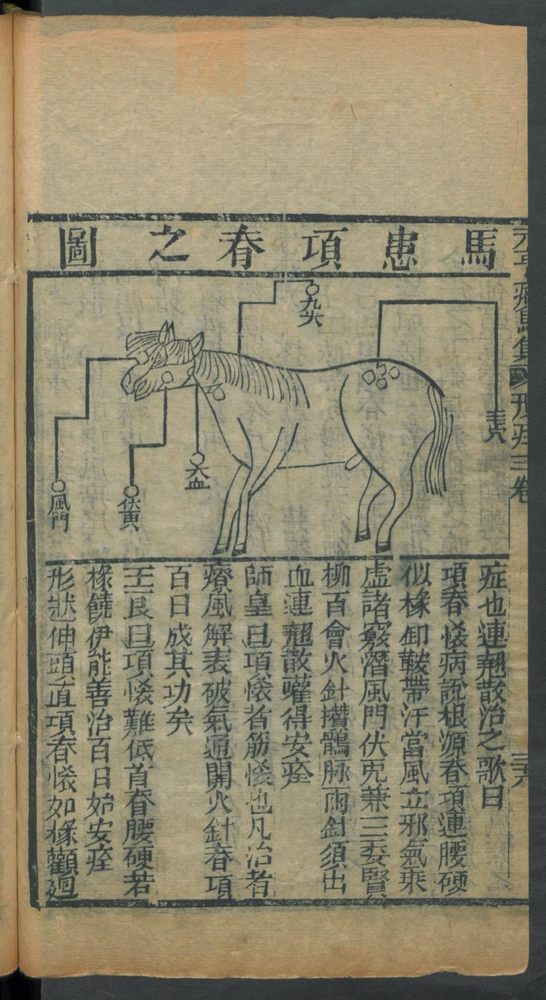 馬患項春之圖
大血
風門
症也連翹散治之歌曰
項春恡病說根源春項連腰硬
似椽卸鞍帶汗當風立邪氣乘
虛諸竅潛風門伏兎兼三委賢
百會火針攢鶻脉兩針須出
血連翹散嚾得安痊
師皇曰項恡者筋恡也凡治者
療風解表破氣通關火針春項
百日成其功矣
王良曰項恡難低首春腰硬若
椽饒伊能善治百日始安痊
形狀伸頭直項春恡如椽顴廻
元亨療馬集 形症三卷
三六